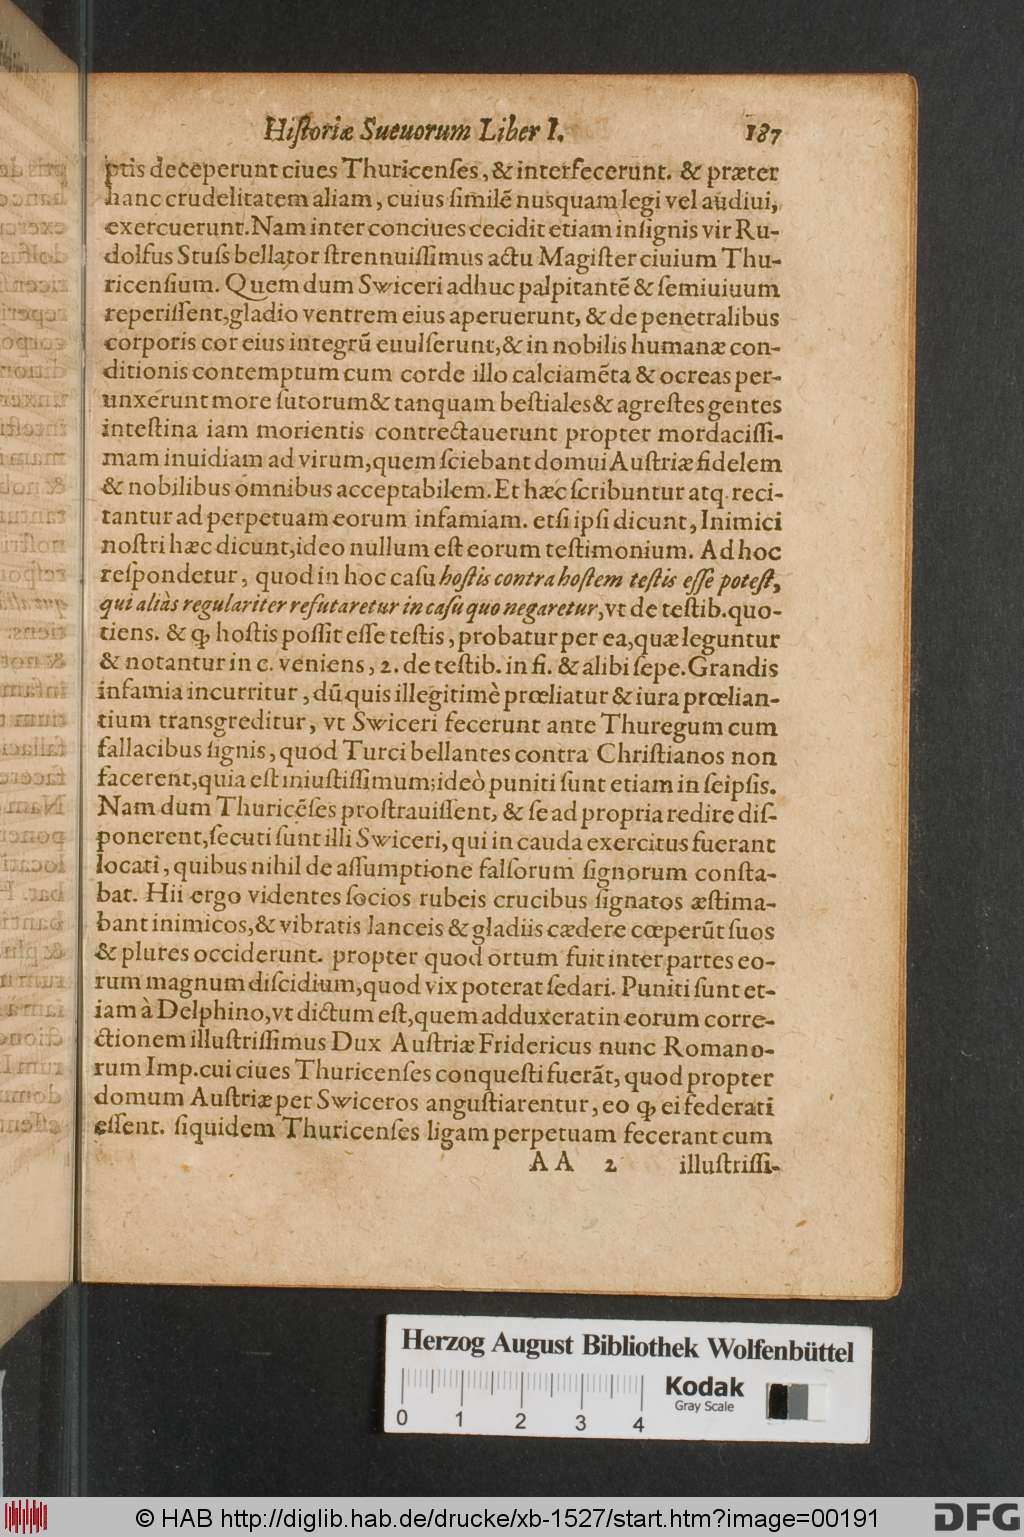 Historiæ Sueuorum Liber I. 187
ptis deceperunt ciues Thuricenſes, & interfecerunt. & præter
hanc crudelitatem aliam, cuius ſimilẽ nusquam legi vel audiui,
exercuerunt. Nam inter conciues cecidit etiam inſignis vir Ru-
dolfus Stuſs bellator ſtrennuiſſimus actu Magiſter ciuium Thu-
ricenſium. Quem dum Swiceri adhuc palpitantẽ & ſemiuiuum
reperiſſent, gladio ventrem eius aperuerunt, & de penetralibus
corporis cor eius integrũ euulſerunt, & in nobilis humanæ con-
ditionis contemptum cum corde illo calciamẽta & ocreas per-
unxerunt more ſutorum & tanquam beſtiales & agreſtes gentes
inteſtina iam morientis contrectauerunt propter mordaciſſi-
mam inuidiam ad virum, quem ſciebant domui Auſtriæ fidelem
& nobilibus omnibus acceptabilem. Et hæc ſcribuntur atq. reci-
tantur ad perpetuam eorum infamiam. etſi ipſi dicunt, Inimici
noſtri hæc dicunt, ideo nullum eſt eorum teſtimonium. Ad hoc
reſpondetur, quod in hoc caſu hoſtis contra hoſtem teſtis eſſe poteſt,
qui aliàs regulariter refutaretur in caſu quo negaretur, vt de teſtib. quo-
tiens. & ꝙ hoſtis poſſit eſſe teſtis, probatur per ea, quæ leguntur
& notantur in c. veniens, 2. de teſtib. in fi. & alibi ſepe. Grandis
infamia incurritur, dũ quis illegitimè prœliatur & iura prœlian-
tium transgreditur, vt Swiceri fecerunt ante Thuregum cum
fallacibus ſignis, quod Turci bellantes contra Chriſtianos non
facerent, quia eſt iniuſtiſſimum; ideò puniti ſunt etiam in ſeipſis.
Nam dum Thuricẽſes proſtrauiſſent, & ſe ad propria redire diſ-
ponerent, ſecuti ſunt illi Swiceri, qui in cauda exercitus fuerant
locati, quibus nihil de aſſumptione falſorum ſignorum conſta-
bat. Hii ergo videntes ſocios rubeis crucibus ſignatos æſtima-
bant inimicos, & vibratis lanceis & gladiis cædere cœperũt ſuos
& plures occiderunt. propter quod ortum fuit inter partes eo-
rum magnum diſcidium, quod vix poterat ſedari. Puniti ſunt et-
iam à Delphino, vt dictum eſt, quem adduxerat in eorum corre-
ctionem illuſtriſſimus Dux Auſtriæ Fridericus nunc Romano-
rum Imp. cui ciues Thuricenſes conqueſti fuerãt, quod propter
domum Auſtriæ per Swiceros anguſtiarentur, eo ꝙ ei federati
eſſent. ſiquidem Thuricenſes ligam perpetuam fecerant cum
AA 2 illuſtriſſi-
Herzog August Bibliothek Wolfenbüttel
Kodak
Gray Scale
0 1 2 3 4
© HAB http://diglib.hab.de/drucke/xb-1527/start.htm?image=00191
DFG